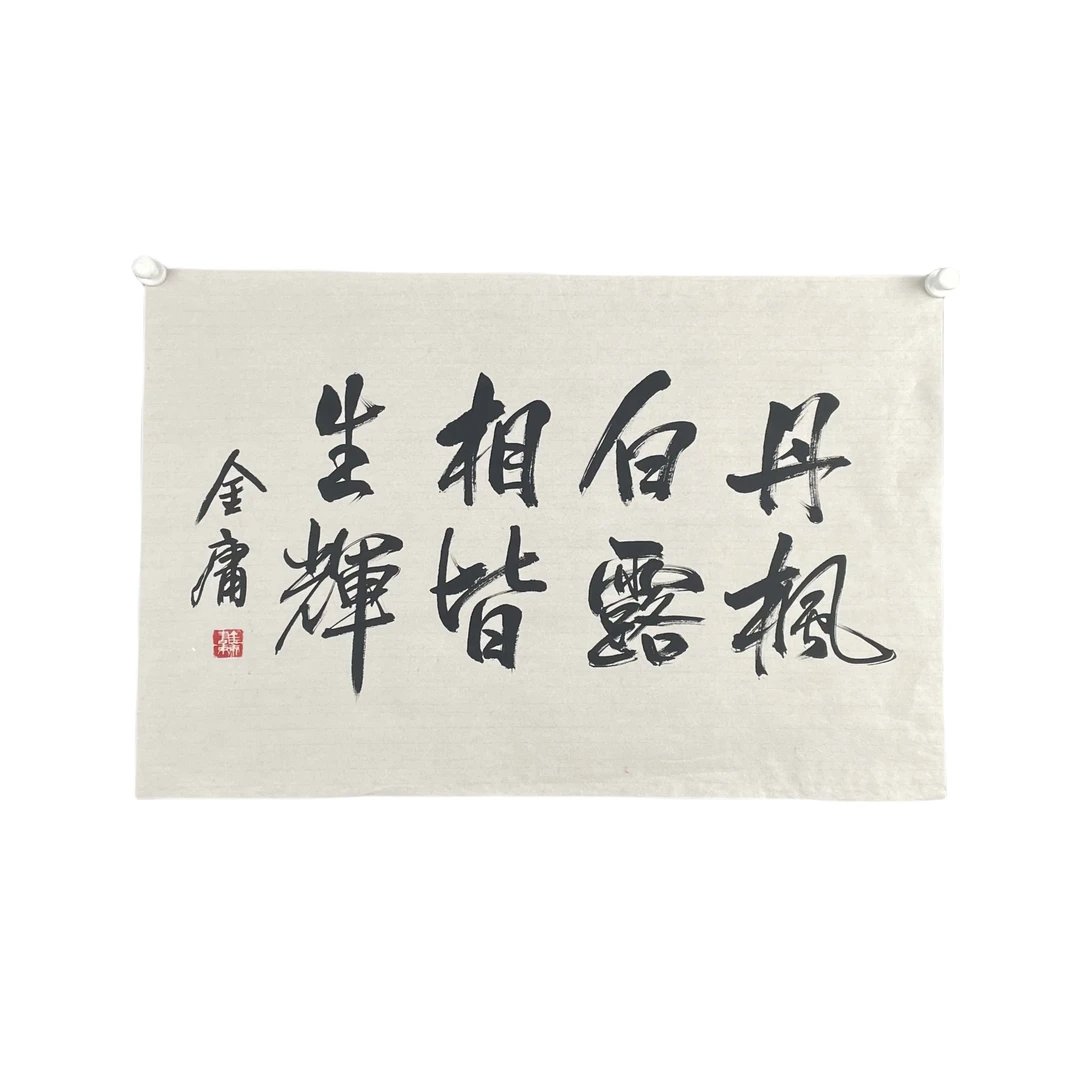 丹楓
白露
相皆
生輝
金庸